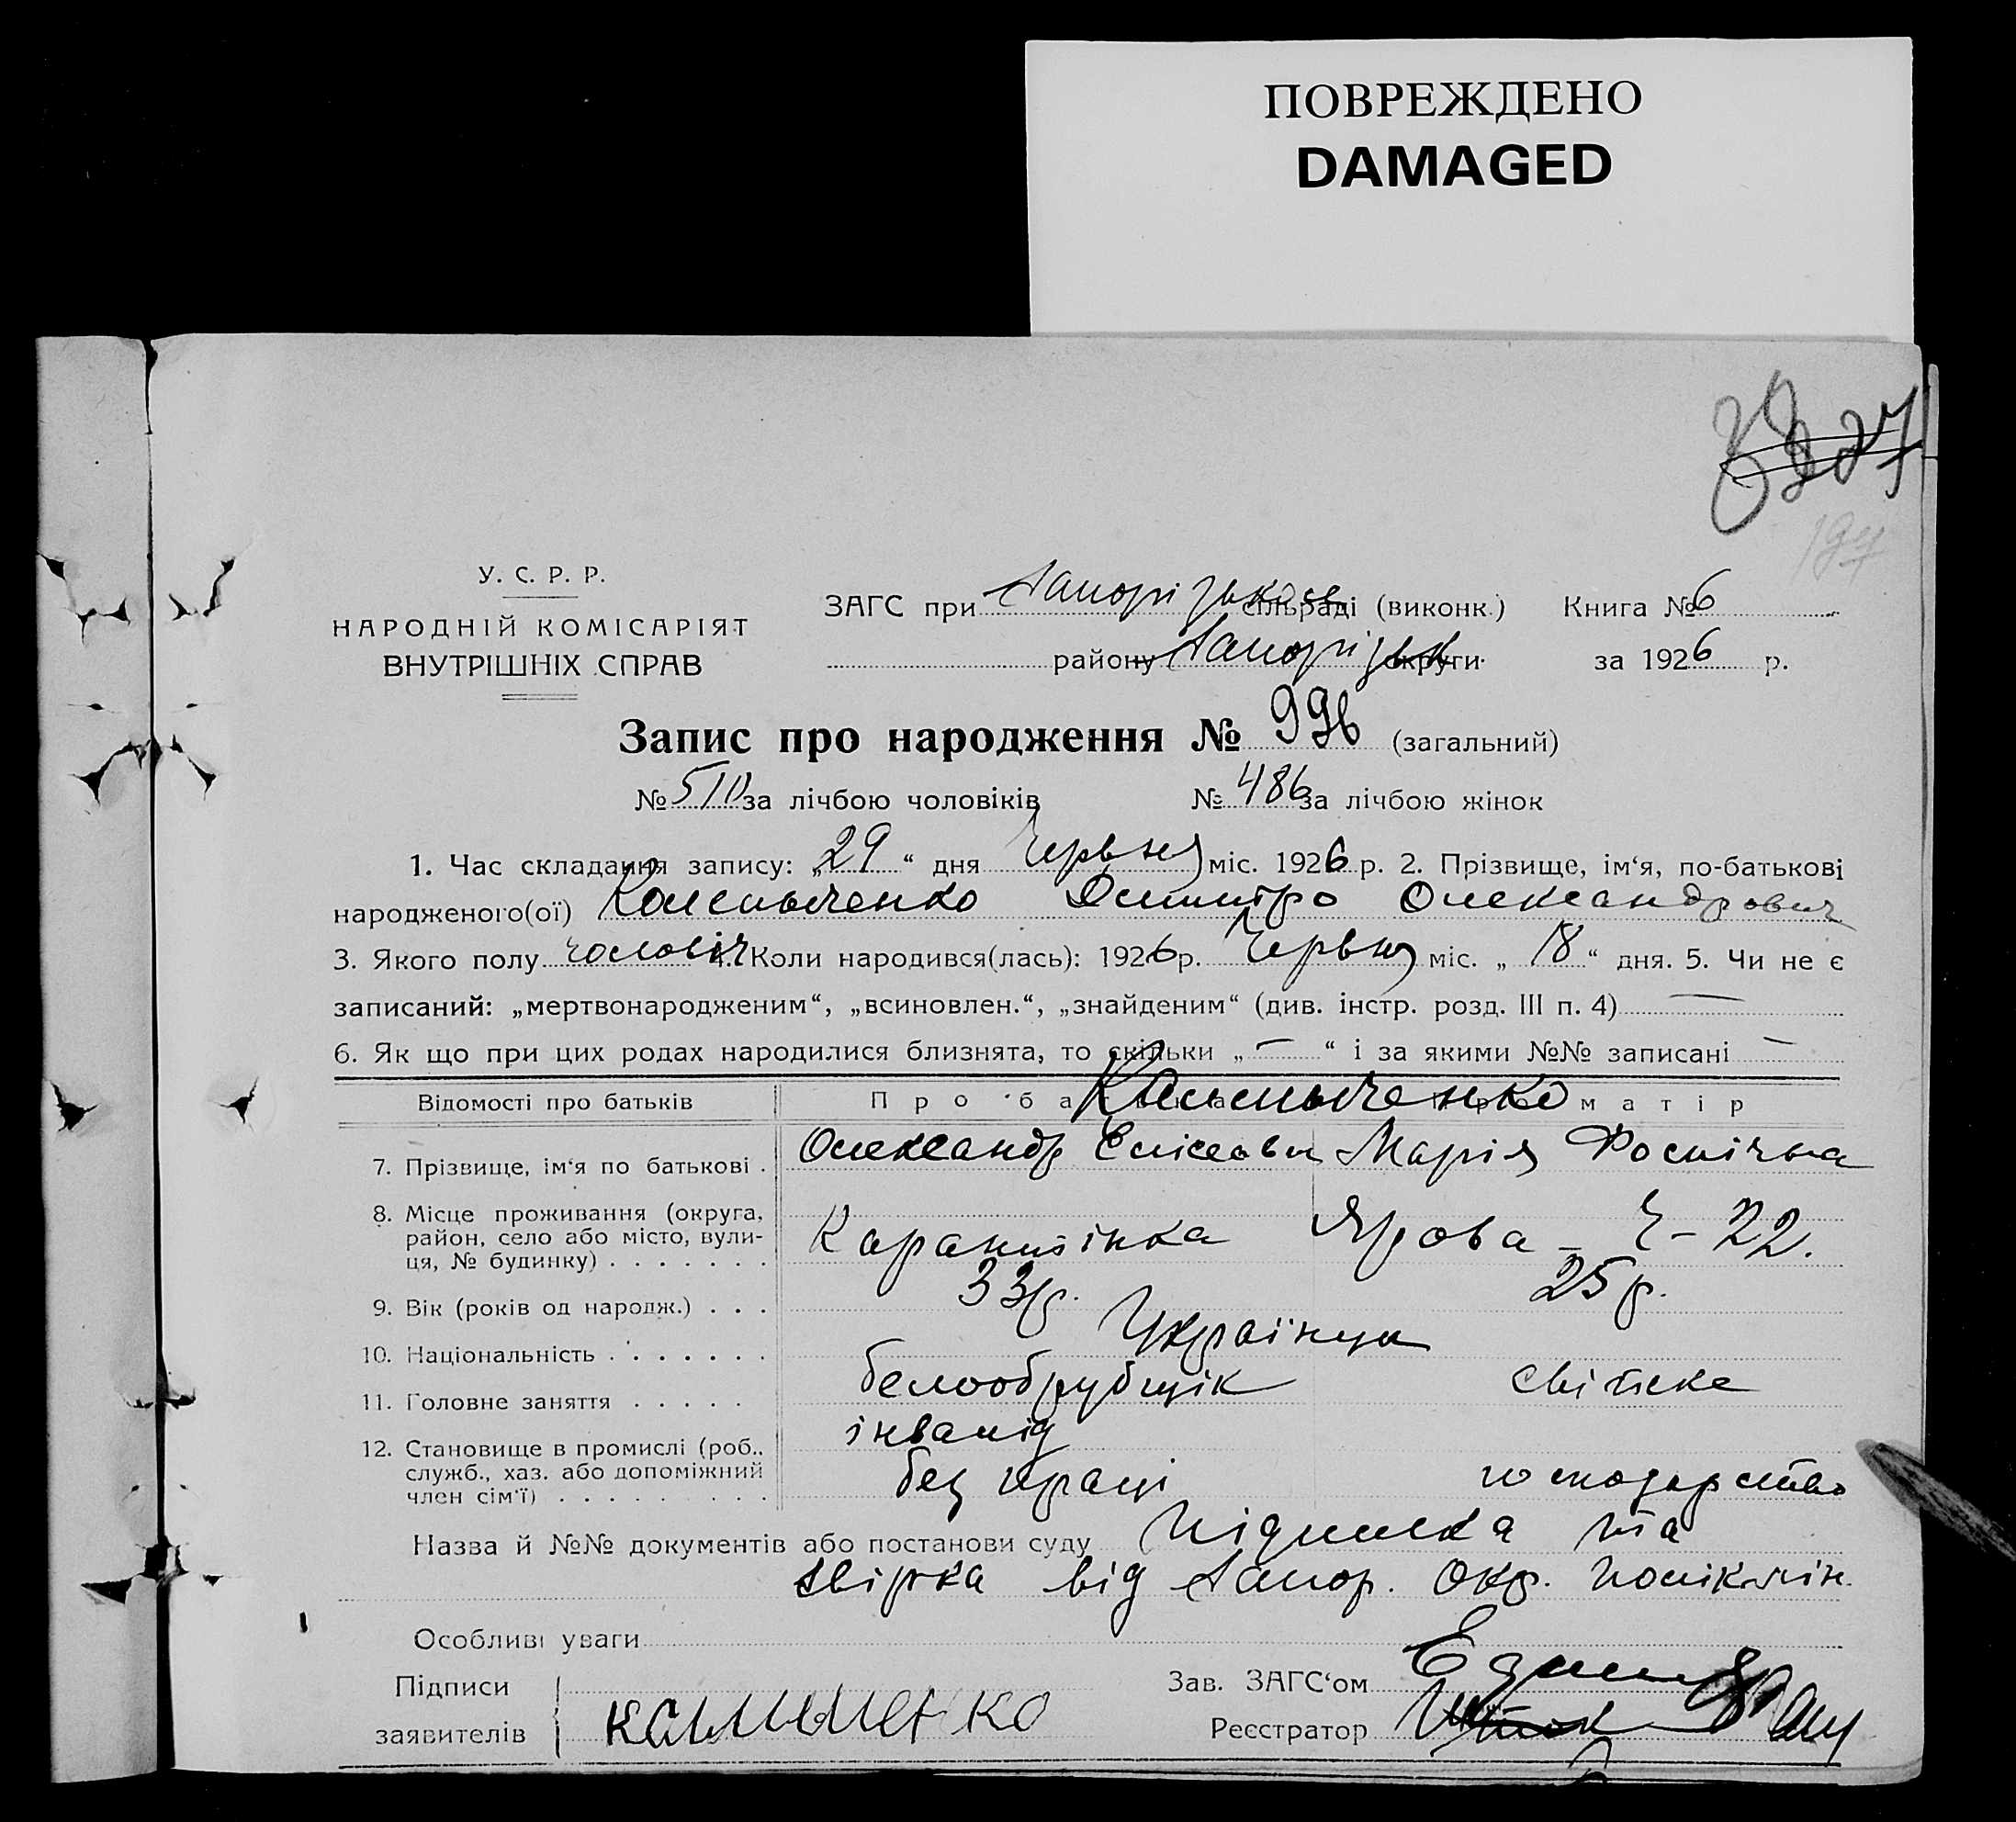 ПОВРЕЖДЕНО
DAMAGED
У. С. Р. Р.
НАРОДНІЙ КОМІСАРІЯТ
ВНУТРІШНІХ СПРАВ
ЗАГС при Запорізькой сільраді (виконк.) Книга № 6
району Запорізьк округи за 1926 р.
Запис про народження № 996 (загальний)
№ 510 за лічбою чоловіків № 486 за лічбою жінок
1. Час складання запису: „29“ дня Червня міс. 1926 р. 2. Прізвище, ім‘я, по-батькові
народженого(ої) Дмитро Олександрович
3. Якого полу чоловіч 4. Коли народився(лась): 1926 р. Червня міс. „18“ дня. 5. Чи не є
записаний: „мертвонародженим“, „всиновлен.“, „знайденим“ (див. інстр. розд. III п. 4) —
6. Як що при цих родах народилися близнята, то скільки „—“ і за якими №№ записані —
Відомості про батьків Про батька Про матір
7. Прізвище, ім‘я по батькові . Олександр Марія
8. Місце проживання (округа, район, село або місто, вули-
ця, № будинку) . . . . . . . Карантінка Ярова – 22.
9. Вік (років од народж.) . . . 33 р. 25 р.
10. Національність . . . . . . . Українци
11. Головне заняття . . . . . белообрубщік
12. Становище в промислі (роб., інвалід
служб., хаз. або допоміжний
член сім‘ї) . . . . . . . . . без праці господарство
Назва й №№ документів або постанови суду Підписка та
звірка від Запор. Окр. полікл
Особливі уваги
Підписи
заявителів
Зав. ЗАГС‘ом
Реєстратор